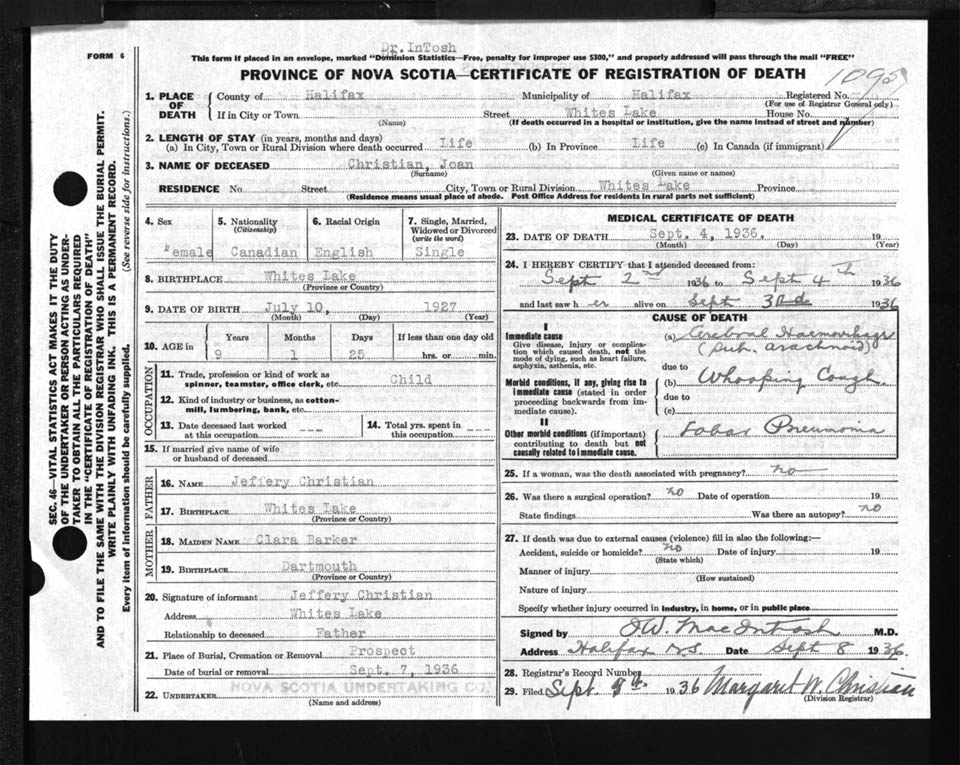 Dr. InTosh
FORM 6
This form if placed in an envelope, marked "Dominion Statistics—Free, penalty for improper use $300," and properly addressed will pass through the mail "FREE"
PROVINCE OF NOVA SCOTIA—CERTIFICATE OF REGISTRATION OF DEATH
1. PLACE OF DEATH
County of Halifax Municipality of Halifax Registered No.
(For use of Registrar General only)
If in City or Town Street Whites Lake House No.
(Name) (If death occurred in a hospital or institution, give the name instead of street and number)
2. LENGTH OF STAY (in years, months and days)
(a) In City, Town or Rural Division where death occurred Life (b) In Province Life (c) In Canada (if immigrant)
3. NAME OF DECEASED Christian, Joan
(Surname) (Given name or names)
RESIDENCE No. Street City, Town or Rural Division Whites Lake Province
(Residence means usual place of abode. Post Office Address for residents in rural parts not sufficient)
4. Sex 5. Nationality (Citizenship) 6. Racial Origin 7. Single, Married, Widowed or Divorced (write the word)
Female Canadian English Single
8. BIRTHPLACE Whites Lake
(Province or Country)
9. DATE OF BIRTH July 10, 1927
(Month) (Day) (Year)
10. AGE in Years Months Days If less than one day old
9 1 25 hrs. or min.
OCCUPATION
11. Trade, profession or kind of work as
spinner, teamster, office clerk, etc. Child
12. Kind of industry or business, as cotton-
mill, lumbering, bank, etc.
13. Date deceased last worked at this occupation --- 14. Total yrs. spent in this occupation ---
15. If married give name of wife
or husband of deceased
FATHER
16. NAME Jeffery Christian
17. BIRTHPLACE Whites Lake
(Province or Country)
MOTHER
18. MAIDEN NAME Clara Barker
19. BIRTHPLACE Dartmouth
(Province or Country)
20. Signature of informant Jeffery Christian
Address Whites Lake
Relationship to deceased Father
21. Place of Burial, Cremation or Removal Prospect
Date of burial or removal Sept. 7, 1936
22. UNDERTAKER NOVA SCOTIA UNDERTAKING CO.
(Name and address)
MEDICAL CERTIFICATE OF DEATH
23. DATE OF DEATH Sept. 4, 1936. 19
(Month) (Day) (Year)
24. I HEREBY CERTIFY that I attended deceased from:
Sept 2nd 1936 to Sept 4th 1936
and last saw her alive on Sept 3rd 1936
CAUSE OF DEATH
I
Immediate cause
Give disease, injury or complica-
tion which caused death, not the
mode of dying, such as heart failure,
asphyxia, asthenia, etc.
(a) Cerebral Haemorrhage
(sub. arachnoid)
due to
Morbid conditions, if any, giving rise to
immediate cause (stated in order
proceeding backwards from im-
mediate cause).
(b) Whooping Cough
due to
(c)
II
Other morbid conditions (if important)
contributing to death but not
causally related to immediate cause.
Lobar Pneumonia
25. If a woman, was the death associated with pregnancy? no
26. Was there a surgical operation? no Date of operation 19
State findings Was there an autopsy? no
27. If death was due to external causes (violence) fill in also the following:—
Accident, suicide or homicide? no Date of injury 19
(State which)
Manner of injury
(How sustained)
Nature of injury
Specify whether injury occurred in industry, in home, or in public place
Signed by MacIntosh M.D.
Address Halifax N.S. Date Sept 8 1936
28. Registrar's Record Number
29. Filed Sept. 8th 1936 Margaret W. Christian
(Division Registrar)
SEC. 46—VITAL STATISTICS ACT MAKES IT THE DUTY
OF THE UNDERTAKER OR PERSON ACTING AS UNDER-
TAKER TO OBTAIN ALL THE PARTICULARS REQUIRED
IN THE "CERTIFICATE OF REGISTRATION OF DEATH"
AND TO FILE THE SAME WITH THE DIVISION REGISTRAR WHO SHALL ISSUE THE BURIAL PERMIT.
WRITE PLAINLY WITH UNFADING INK. THIS IS A PERMANENT RECORD.
Every item of information should be carefully supplied. (See reverse side for instructions.)